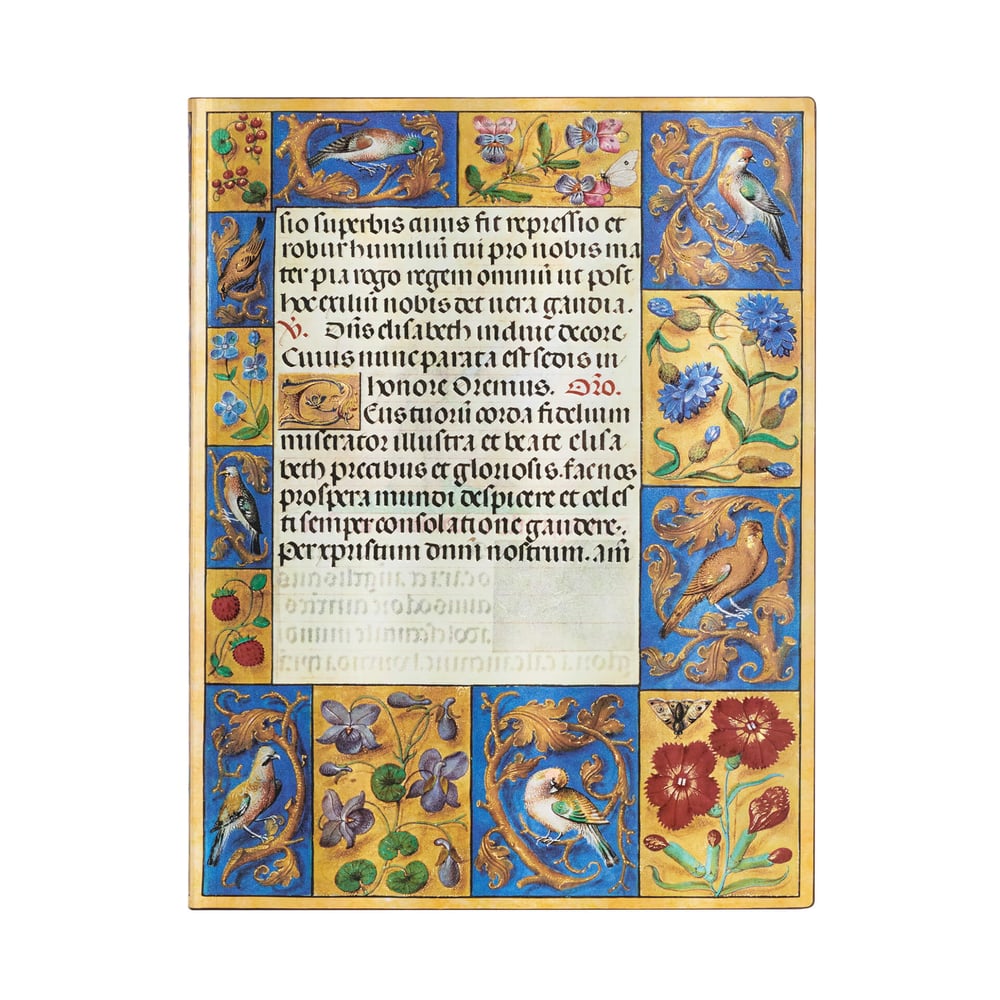 sio superbis cuius fit repressio et
robur humiliū cui pro nobis ma
ter pia rogo regem omniū ut post
hoc exiliū nobis det uera gaudia.
V. Dn̄s elisabeth induit decore.
Cuius nunc parata est sedis in
honore Oremus. Oro.
Deus tuorū corda fidelium
miserator illustra et beate elisa
beth precibus et gloriosis. fac nos
prospera mundi despicere et celes
ti semper consolatione gaudere.
Per xpristum dnm̄ nostrum. am̄